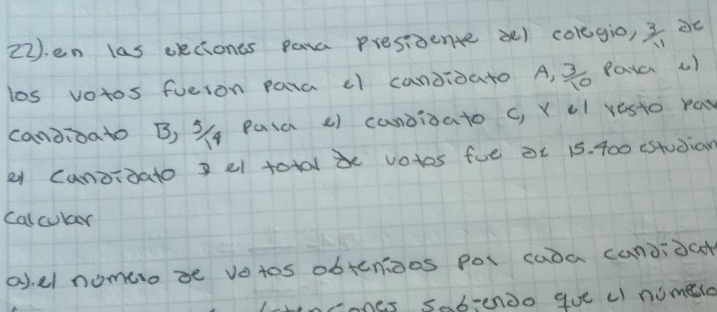 22).en las elecciones para presidente del colegio, 3/11 de
los votos fueron para el candidato A, 3/10 Para el
candidato B, 5/14 Para el candidato C, Y el resto par
el candidato D el total de votos fue de 15.400 estudian
Calcular
a).el número de votos obtenidos por cada candidat
sabiendo que el número